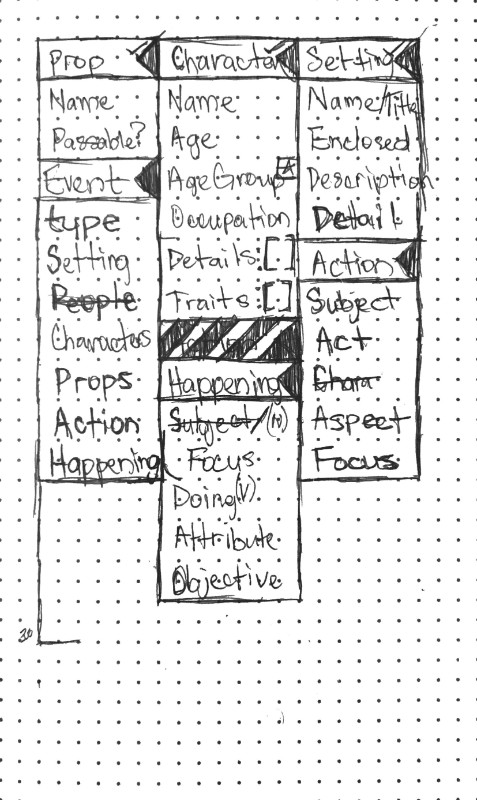 Prop
Name
Passable?
Event
type
Setting
People
Characters
Props
Action
Happening
Character
Name
Age
Age Group A
Occupation
Details: []
Traits: []
Happening
Subject/(N)
Focus
Doing(V)
Attribute
Objective
Setting
Name/Title
Enclosed
Description
Detail
Action
Subject
Act
Chara
Aspect
Focus